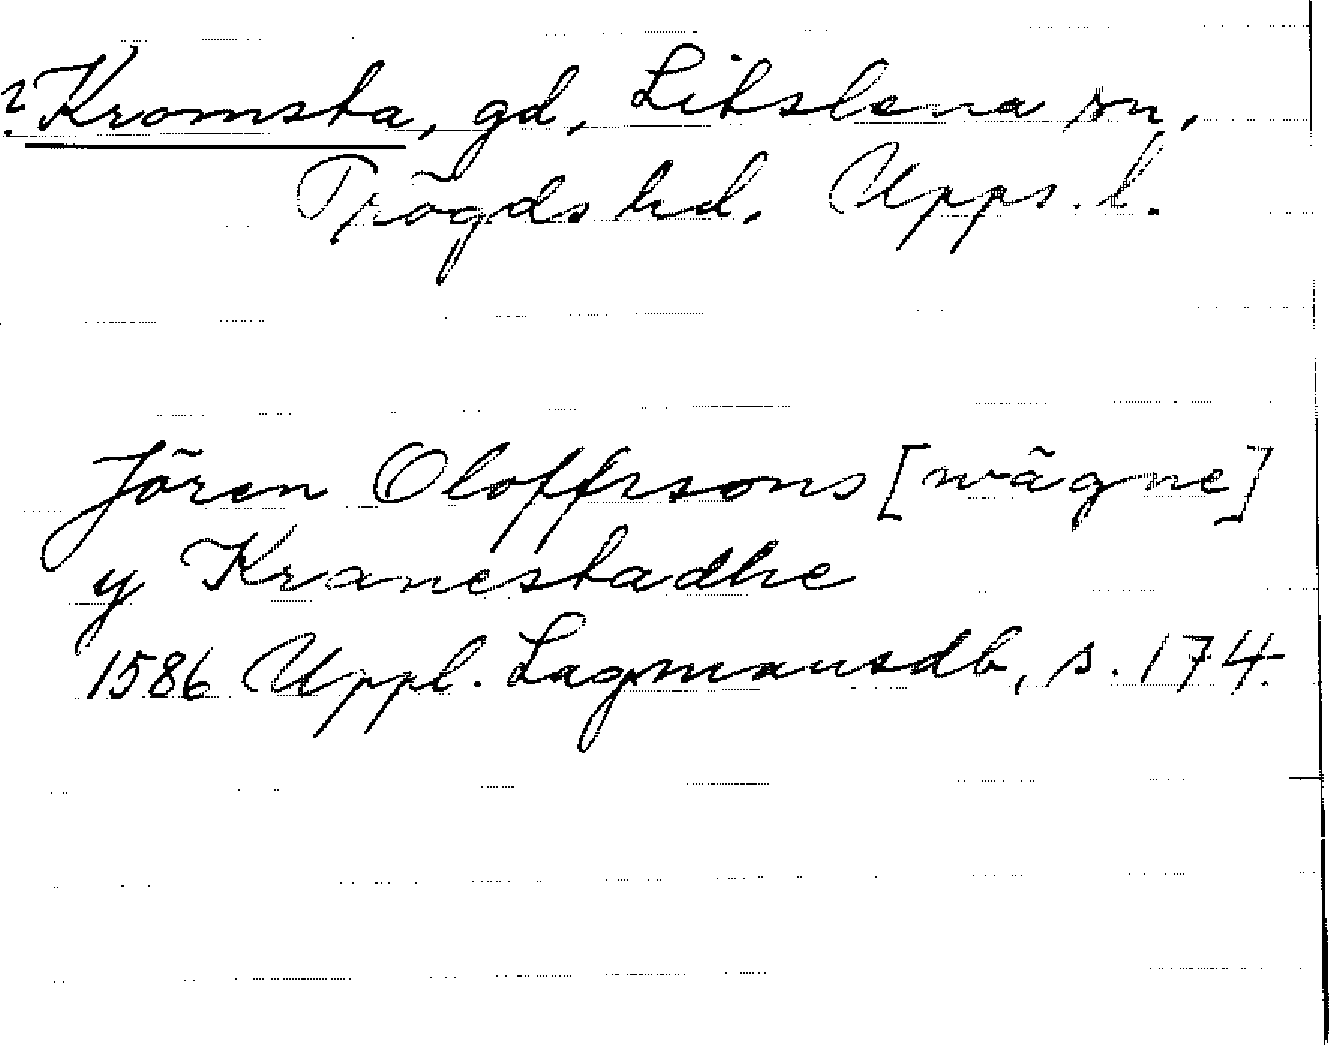 ? Kromsta, gd, Litslena sn,
Trögds hd. Upps. l.
Jören Oloffssons [wägne]
y Kranestadhe
1586 Uppl. Lagmansdb, s. 174.